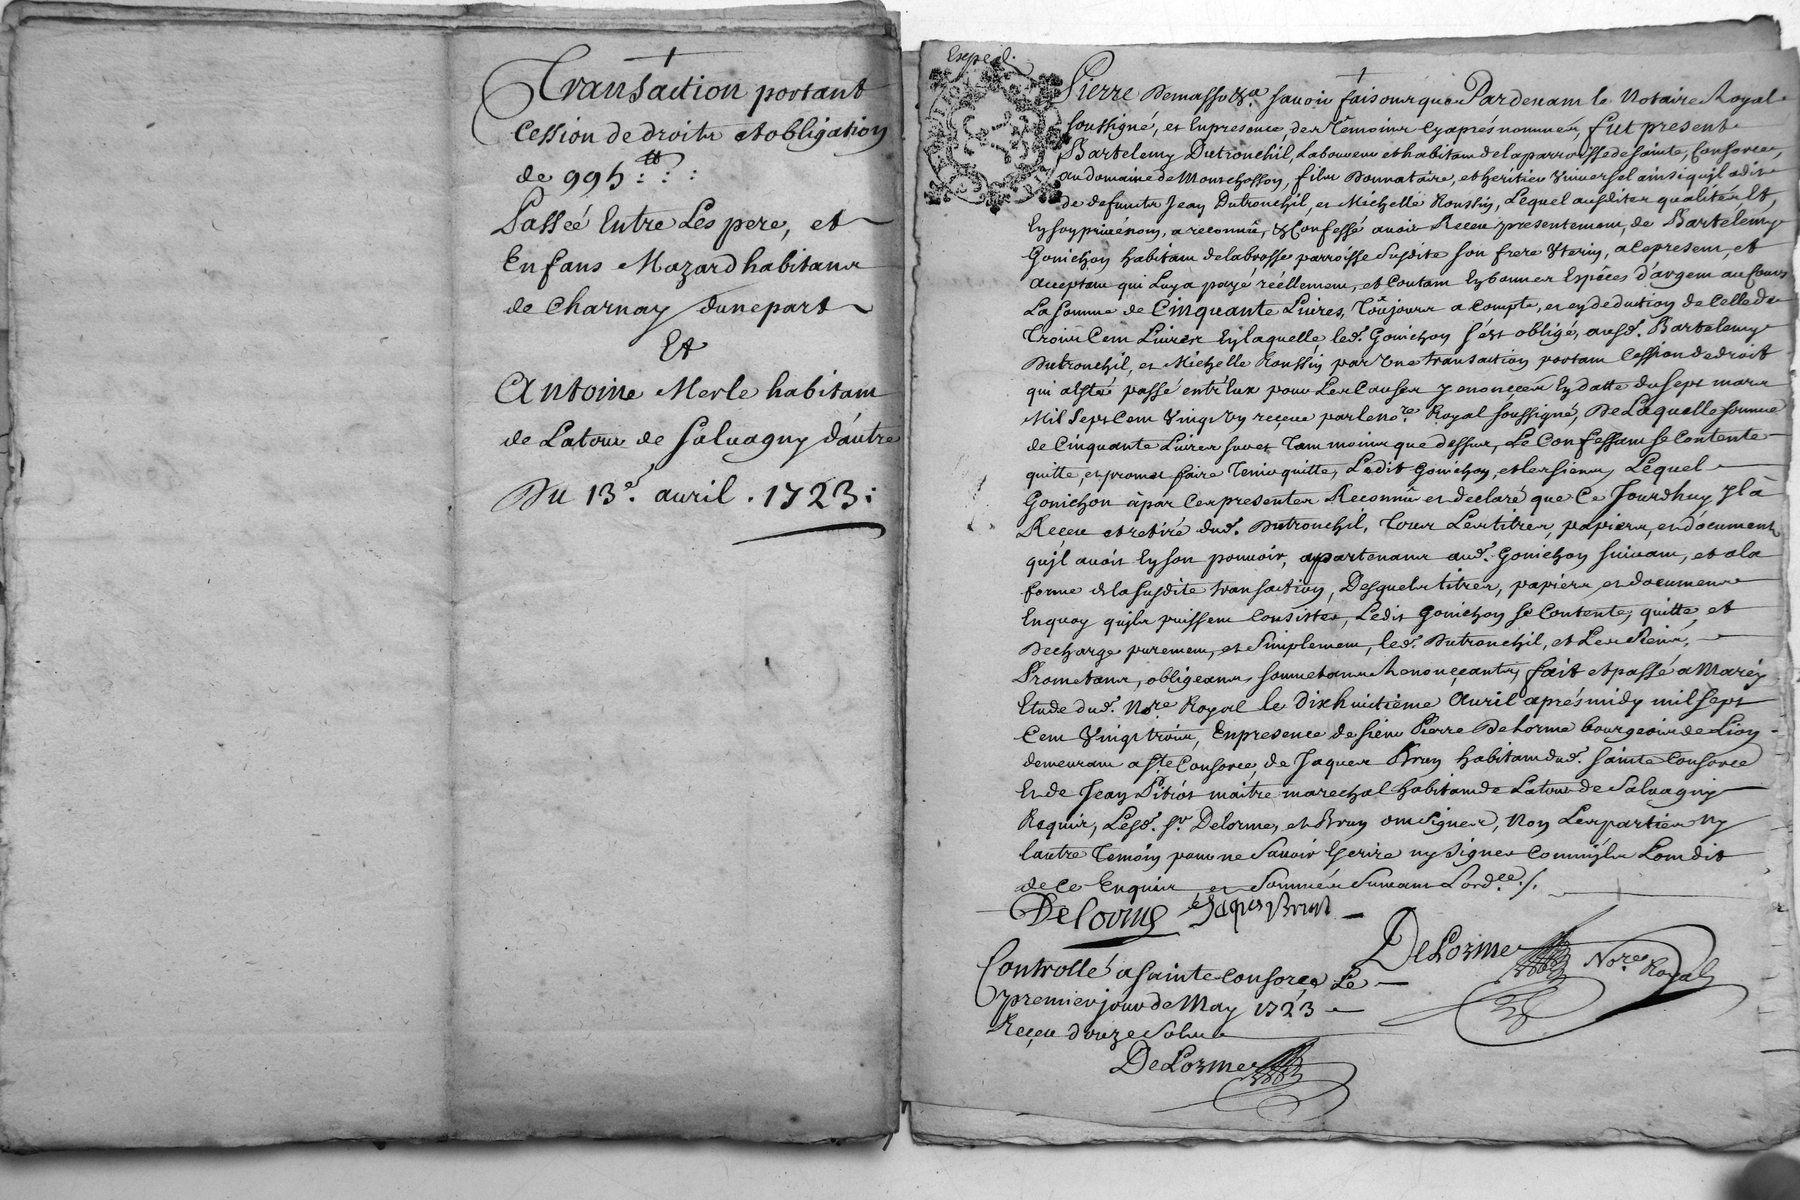 Transaction portant
Cession de droits et obligation
de 995 ₶ : :
Passeé Entre Les pere, et
Enfans Mazard habitans
de Charnay dune part
Et
Antoine Merle habitant
de Latour de Saluagny d'autre
Du 13e. auril . 1723 :
Exped.
Pierre Demasso &a sauoir faisons que Pardeuant le Notaire Royal
soussigné, et En presence, des Témoins cy aprés nommés, fut present
Bartelemy Dutronchil, Laboureur et habitant de la parroisse de sainte Consorce,
au domaine de Montchosson, fils Donnataire, et heritier Vniuersel ainsi qu'jl a dit
de defunts Jean Dutronchil, et Michelle Roussin, Lequel ausdites qualités Et,
En son priué nom, a reconnû, & Confessé auoir Receu presentement, de Bartelemy
Gonichon habitant de la brosse parroisse Susdite son frere Vterin, a ce present, et
acceptant qui Luy a payé réellement, et Contant En bonnes Espéces d'argent au Cours
La somme de Cinquante Liures, Toûjours a Compte, et en deduction de Celle de
Trois Cent Liures En laquelle, led. Gonichon s'est obligé, ausd. Bartelemy
Dutronchil, et Michelle Roussin par Vne transaction portant Cession de droit
qui a esté passé entr'Eux pour Les Causes y enoncées En datte du sept mars
Mil Sept Cent Vingt Vn receue par le no.re Royal soussigné, De Laquelle somme
de Cinquante Liures sur et Tant moins que dessus, Le Confessant se Contente
quitte, et promet faire Tenir quitte, Ledit Gonichon, et les siens, Lequel
Gonichon à par Ces presentes Reconnû et declaré que Ce Jourdhuy Jl à
Receu et retiré dud. Dutronchil, Tous Les titres, papiers, et documents
qu'jl auoit En son pouuoir, appartenans aud. Gonichon suiuant, et a la
forme de la susdite transaction, Desquels titres, papiers et documens
En quoy qu'jls puissent Consister, Ledit Gonichon se Contente, quitte, et
Decharge purement, et Simplement, led. Dutronchil, et Les Siens,
Prometans, obligeans, soumetans Renonçeants, fait et passé a Marcy
Etude dud. No.re Royal le Dixhuitiéme Auril aprés midy mil sept
Cent Vingt trois, En presence de sieur Pierre Delorme bourgeois de Lion
demeurant a Ste Consorce, de Jaques Brun habitant dud. Sainte Consorce
Et de Jean Pitiot maitre marechal habitant de Latour de Saluagny
Requis, Lesd. sr. Delorme, et Brun ont Signes, Non Les parties ny
l'autre Temoin pour ne Sauoir Escrire ny Signer Comm'jls L'ont dit
de Ce Enquis et Sommés Suiuant L'ord.ce./.
Delorme Jaques Brun
Delorme No.re Royal
Controllé a sainte Consorce Le
premier jour de May 1723
Receu douze Sols
Delorme